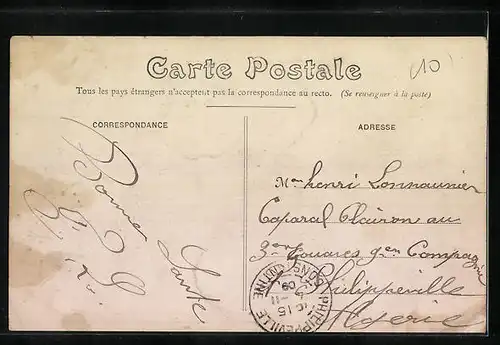 Carte Postale
(10)
Tous les pays étrangers n'acceptent pas la correspondance au recto. (Se renseigner à la poste)
CORRESPONDANCE
ADRESSE
Bonne
Santé
Mr henri Lonnaunier
Caporal Clairon au
3em Zouaves 9em Compagnie
Philippeville
Algérie
PHILIPPEVILLE
CONSTANTINE
15
09